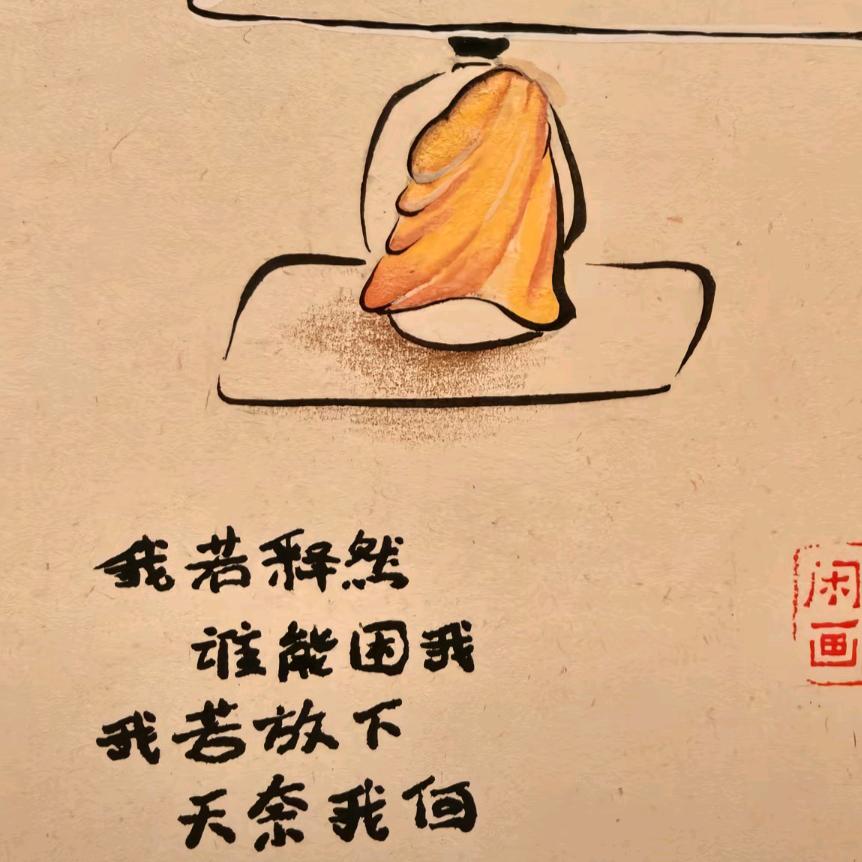 我若释然
谁能困我
我若放下
天奈我何
闲画